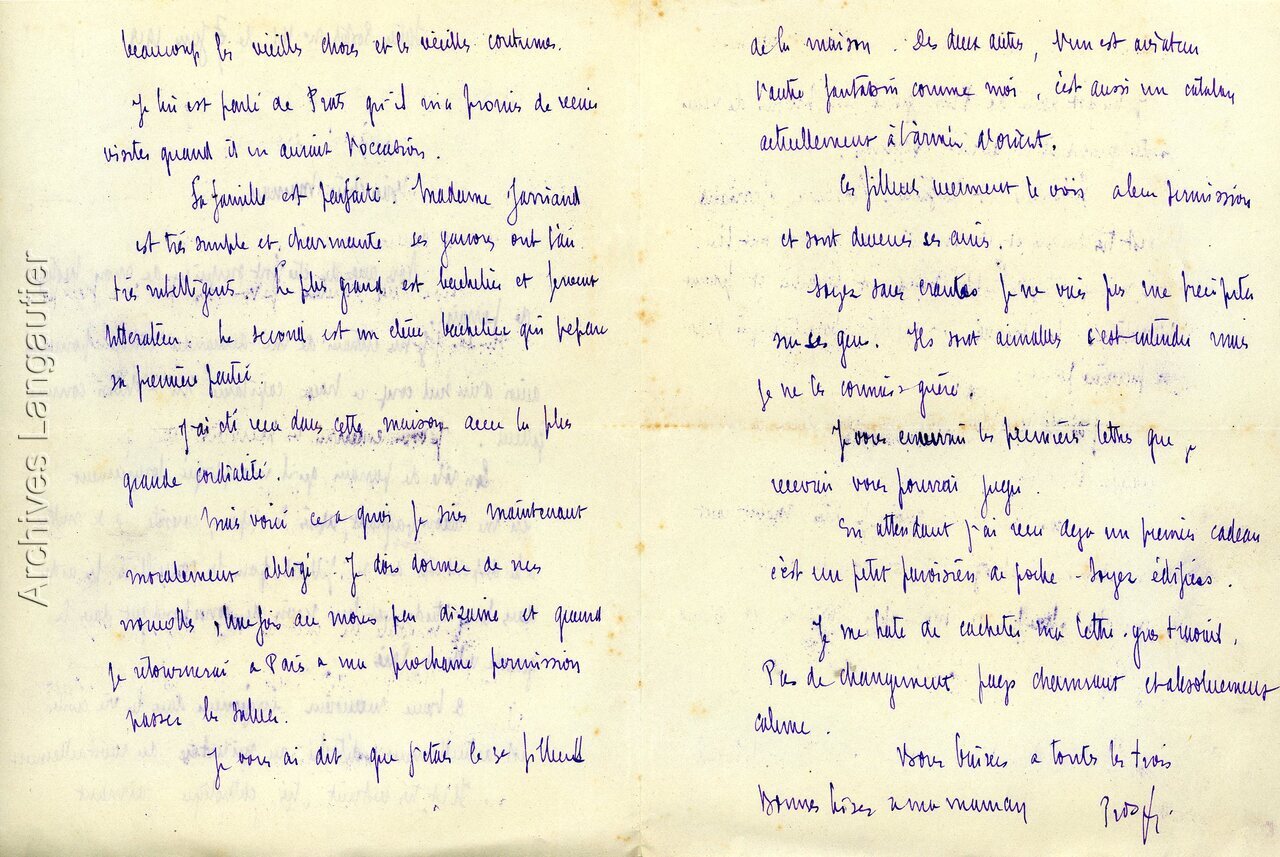 beaucoup les vieilles choses et les vieilles coutumes.
Je lui est parlé de Prats qu'il m'a promis de venir
visiter quand il en aurait l'occasion.
Sa famille est parfaite. Madame Jarriand
est très simple et charmante ses garçons ont l'air
très intelligent. Le plus grand est bachelier et fervent
litterateur. Le second est un élève bachelier qui prépare
sa première partie.
J'ai été reçu dans cette maison avec la plus
grande cordialité.
Mais voici ce a quoi je suis maintenant
moralement obligé. Je dois donner de mes
nouvelles, une fois au moins par dizaine et quand
je retournerai a Paris a ma prochaine permission
passer les saluer.
Je vous ai dit que j'étais le 3e filleul
de la maison. Des deux autres, l'un est aviateur
l'autre fantassin comme moi, c'est aussi un catalan
actuellement à l'armée d'orient.
Ces filleuls viennent le voir a leur permission
et sont devenus ses amis.
Soyez sans craintes je ne vais pas me precipiter
sur ses gens. Ils sont aimables c'est entendu mais
je ne les connais guère.
Je vous enverrai les premières lettres que je
recevrai vous pourrai juger.
En attendant j'ai recu deja un premier cadeau
c'est un petit paroissien de poche. Soyez édifiés.
Je me hate de cacheter ma lettre. gros travail.
Pas de changement pays charmant et absolument
calme.
Bons baisers a toutes les trois
Bonnes bises a ma maman
Archives Langautier